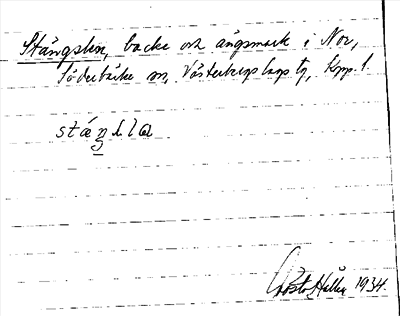 Stängslen, backe och ängsmark i Nor,
Söderbärke sn, Västerbergslags tg, Kopp. l.
stáŋsla
Gösta Hallen 1934.